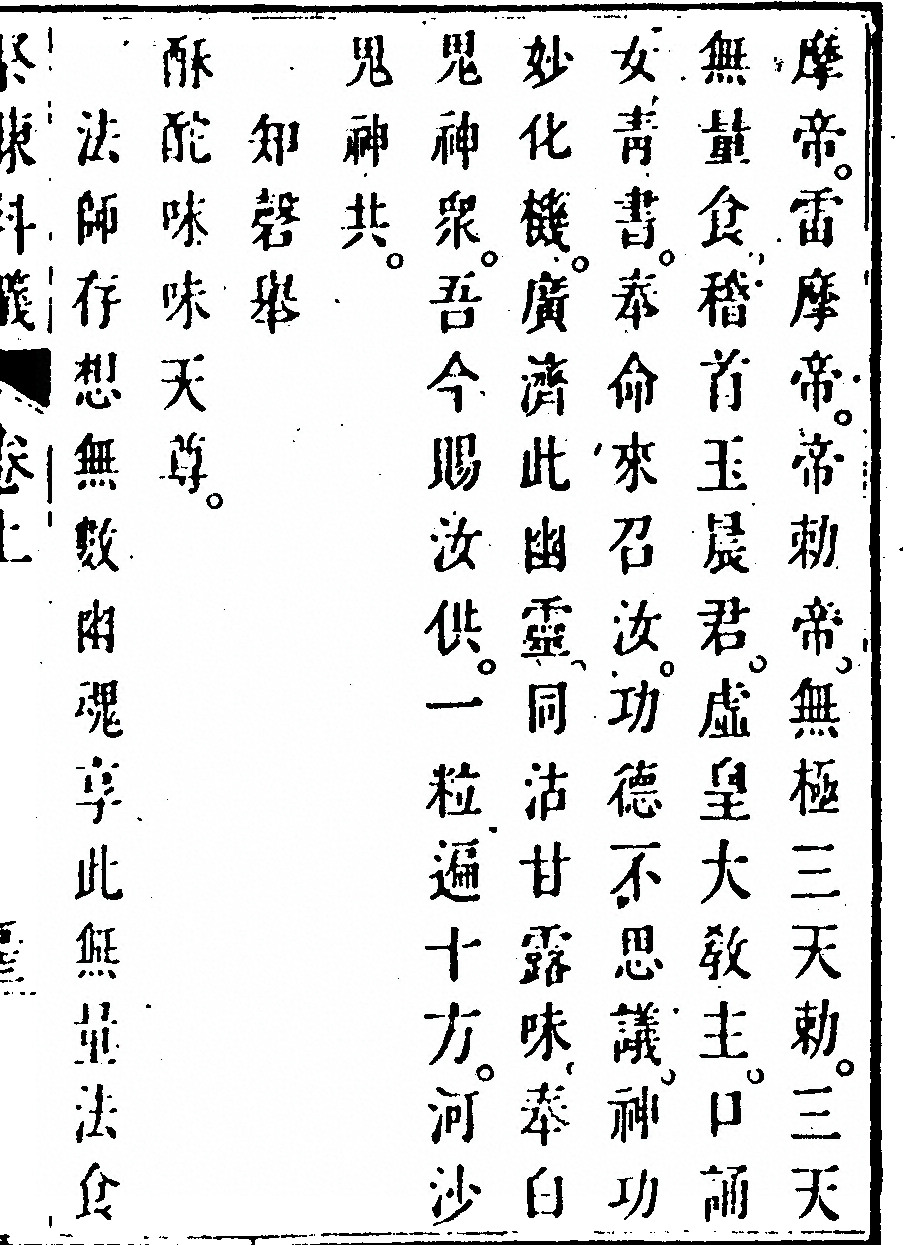 摩帝。雷摩帝。帝勅帝。無極三天勅。三天
無量食。稽首玉晨君。虛皇大教主。口誦
女青書。奉命來召汝。功德不思議。神功
妙化機。廣濟此幽靈。同沾甘露味。奉白
鬼神衆。吾今賜汝供。一粒遍十方。河沙
鬼神共。
知磬舉
酥酡味味天尊。
法師存想無數幽魂享此無量法食
科儀 卷上